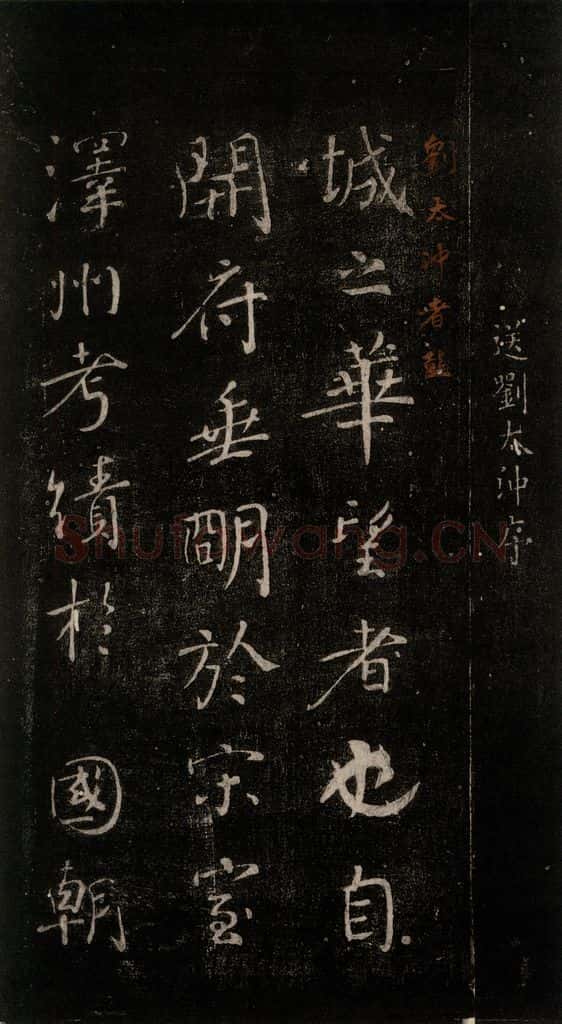 送劉太沖序
劉太沖者彭
城之華望者也自
開府垂明於宋室
澤州考績於 國朝
Shufawang.CN